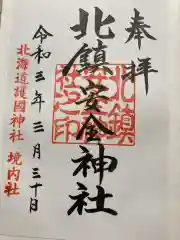 奉拝
北鎮安全神社
北鎮
社之印
令和三年三月三十日
北海道護國神社 境内社